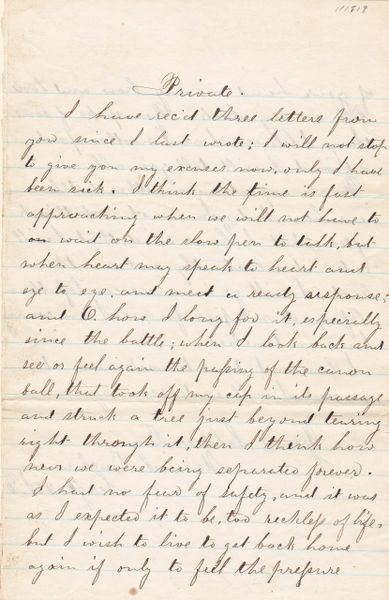 11519
Private.
I have rec'd three letters from
you since I last wrote; I will not stop
to give you my excuses now, only I have
been sick. I think the time is fast
approaching when we will not have to
on wait on the slow pen to talk, but
when heart may speak to heart and
eye to eye, and meet a ready response;
and O. how I long for it, especially
since the battle; when I look back and
see or feel again the passing of the canon
ball, that took off my cap in its passage
and struck a tree just beyond tearing
right through it, then I think how
near we were being separated forever.
I had no fear of safety, and it was
as I expected it to be, too reckless of life,
but I wish to live to get back home
again if only to feel the pressure